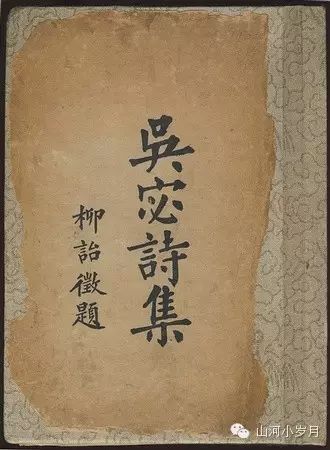 吳宓詩集
柳詒徵題
山河小岁月